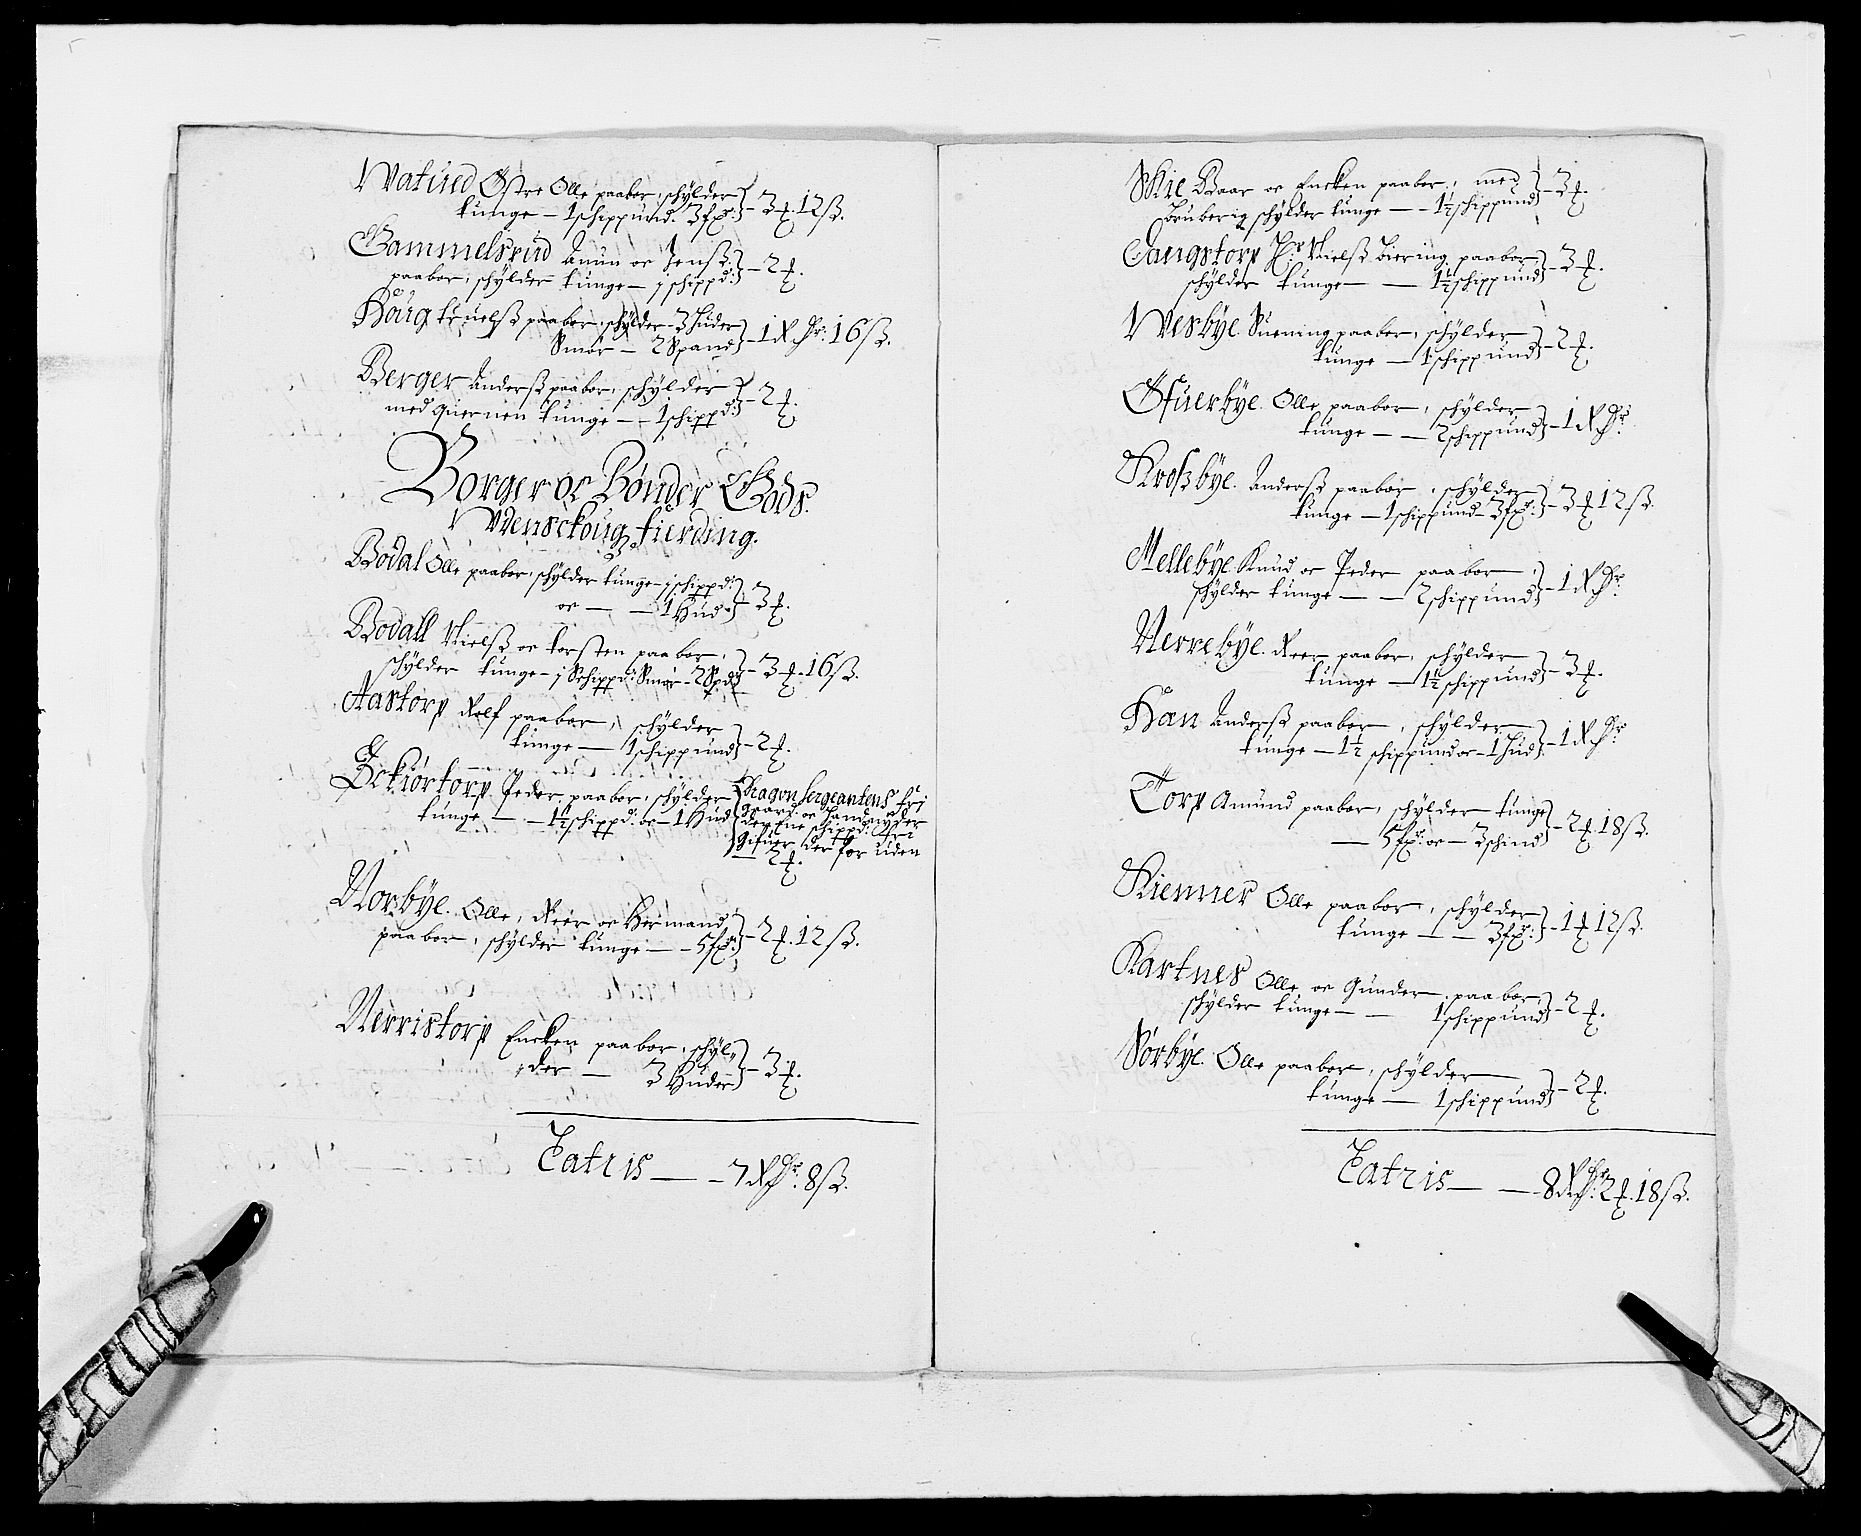 Watued Østre Olle paaboer, schylder
tunge — 1 schippund. 3 fr: — 3 ʠ. 12 ß.
Gammelsrud Anun oc Jenß
paaboer, schylder tunge — j schippd: — 2 ʠ.
Houg truelß paaboer, schylder 3 huder
Smør — 2 Spand — 1 Rdr: 16 ß.
Berger Anderß paaboer, schylder
med quernen tunge — 1 schippd: — 2 ʠ.
Borger oc Bønder Gods.
Wdenschoug fierding.
Bodal Olle paaboer, schylder tunge — j schippd:
oc — 1 Hud — 3 ʠ.
Bodall Nielß oc torsten paaboer,
schylder tunge — j Schippd: Smør — 2 Spd — 3 ʠ. 16 ß.
Aastorp Rolf paaboer, schylder
tunge — 1 schippund — 2 ʠ.
Eckiørtorp Peder paaboer, schylder
tunge — 1½ schippd: oc — 1 Hud
Dragon Sergeantens fri
gaard oc hand nyder
der Ene schippd: fri
Gifuer der for uden
— 2 ʠ.
Norbye. Olle, Reer oc Hermand
paaboer, schylder tunge — 5 fr: — 2 ʠ. 12 ß.
Nerristorp Encken paaboer, schyl-
der — 3 Huder — 3 ʠ.
Latris — 7 Rdr: 8 ß.
Skie Baar oc Encken paaboer, med
Bruberig schylder tunge — 1½ schippund — 3 ʠ.
Langstorp Hr: Nielß Biering paaboer,
schylder tunge — 1½ schippund — 3 ʠ.
Wesbye. Suening paaboer, schylder
tunge — 1 schippund — 2 ʠ.
Ofuerbye. Olle paaboer, schylder
tunge — 2 schippund — 1 Rdr
Kroßbye. Anderß paaboer, schylder
tunge — 1 schippund — 3 fr: — 3 ʠ 12 ß.
Mellebye. Knud oc Peder paaboer,
schylder tunge — 2 schippund — 1 Rdr
Nerrebye. Reer paaboer, schylder
tunge — 1½ schippund — 3 ʠ.
Haen Anderß paaboer, schylder
tunge — 1½ schippund oc — 1 Hud — 1 Rdr
Torp Amund paaboer, schylder tunge
— 5 fr: oc — 2 schind — 2 ʠ. 18 ß.
Kiemner Olle paaboer, schylder
tunge — 3 fr: — 1 ʠ 12 ß.
Kartnes Olle oc Gunder paaboer,
schylder tunge — 1 schippund — 2 ʠ.
Sørbye. Olle paaboer, schylder
tunge — 1 schippund — 2 ʠ.
Latris — 8 Rdr: 2 ʠ. 18 ß.